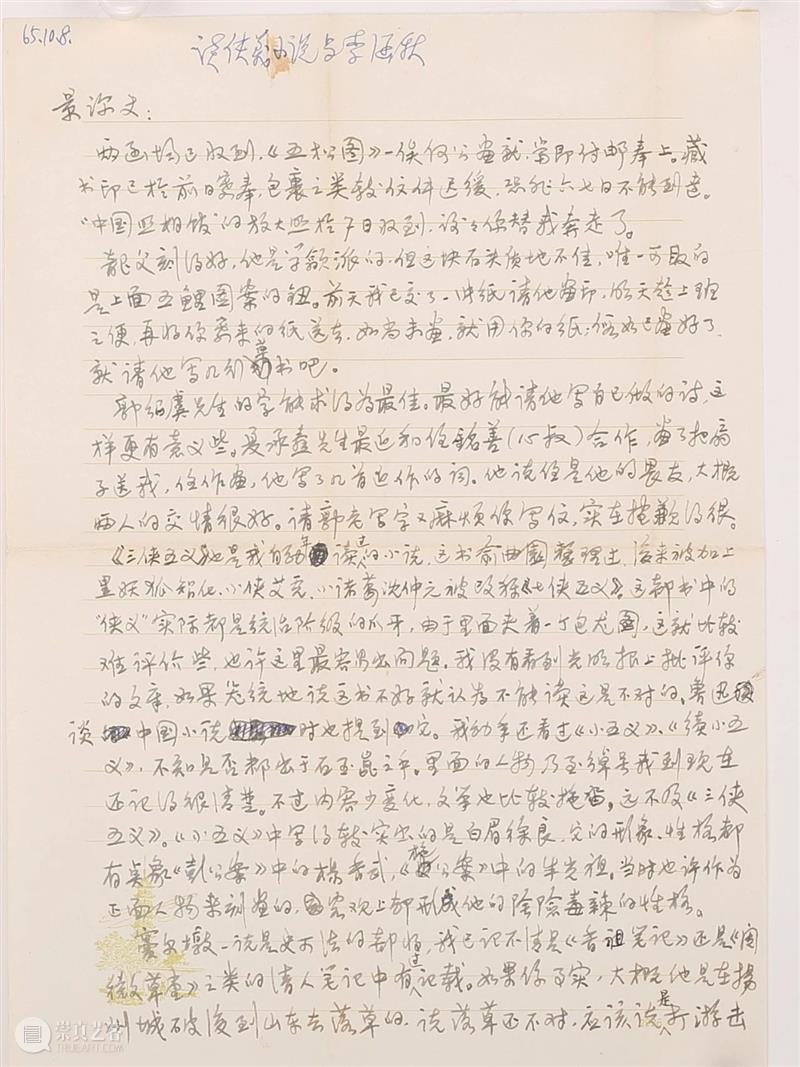 65.10.8.
谈侠义小说与李涵秋
景深丈：
两函均已收到，《五松图》一俟何公画就，当即付邮奉上。藏
书印已于前日寄奉，包裹之类较信件迟缓，恐非六七日不能到达。
"中国照相馆"的放大照于7日收到，谢谢你替我奔走了。
刻得好，他是学派的，但这块石头质地不佳，唯一可取的
是上面五鲤图案的钮。前天我已交了一张纸请他画印，明天趁上班
之便，再将你寄来的纸送去，如尚未画，就用你的纸；倘如已画好了，
就请他写几行书吧。
郭绍虞先生的字能求得为最佳。最好能请他写自已做的诗，这
样更有意义些。夏承焘先生最近和任铭善（心叔）合作，画了把扇
子送我，任作画，他写了几首近作的词。他说任是他的畏友，大概
两人的交情很好。请郭老写字又麻烦你写信，实在抱歉得很。
《三侠五义》也是我幼年读过的小说，这书俞曲园整理过，后来被加上
黑妖狐智化、小侠艾虎、小诸葛沈仲元被改称《七侠五义》。这部书中的
"侠义"实际都是统治阶级的爪牙，由于里面夹着一个包龙图，这就比较
难评价些，也许这里最容易出问题。我没有看到光明报上批评你
的文章，如果笼统地说这书不好就认为不能读这是不对的，鲁迅
谈中国小说时也提到它。我幼年还看过《小五义》、《续小五
义》，不知是否都出于石玉昆之手。里面的人物乃至绰号我到现在
还记得很清楚。不过内容少变化，文笔也比较拖沓，远不及《三侠
五义》。《小五义》中写得较突出的是白眉徐良，它的形象、性格都
有点象《彭公案》中的杨香武，《施公案》中的朱光祖。当时也许作为
正面人物来刻画的，客观上却形成他的阴险毒辣的性格。
窦尔墩一说是史可法的部将，我已记不清是《香祖笔记》还是《阅
微草堂》之类的清人笔记中有过记载。如果信乎实，大概他是在扬
州城破后到山东去落草的，说落草还不对，应该说是打游击